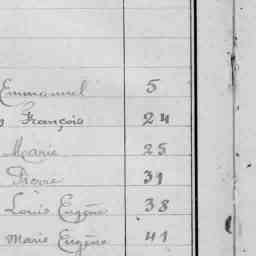 Emmanuel 5
François 24
Marie 25
Pierre 31
Louis Eugène 38
Marie Eugène 41